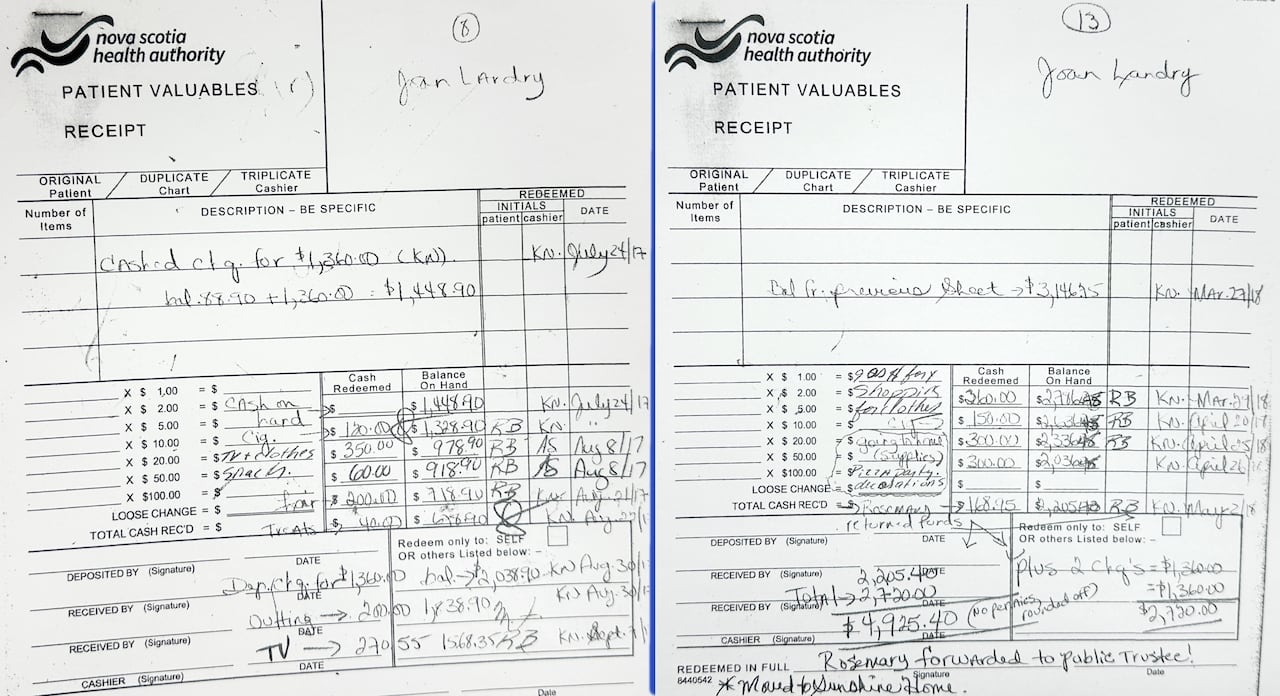 8
nova scotia
health authority
Joan LAndry
PATIENT VALUABLES
RECEIPT
ORIGINAL Patient / DUPLICATE Chart / TRIPLICATE Cashier
Number of Items
DESCRIPTION – BE SPECIFIC
REDEEMED
INITIALS
patient cashier
DATE
CAshed chq. for $1,360.00 (KN). KN. July 24/17
bal. 88.90 + 1,360.00 = $1,448.90
Cash Redeemed
Balance On Hand
X $ 1.00 = $
X $ 2.00 = $ CAsh on $ $1,448.90 KN. July 24/17
X $ 5.00 = $ hand $120.00 $1,328.90 RB KN. "
X $ 10.00 = $ Cig. $350.00 $978.90 RB AS Aug 8/17
X $ 20.00 = $ TV + clothes $60.00 $918.90 RB AS Aug 8/17
X $ 50.00 = $ Snack.
X $100.00 = $ $200.00 $718.90 RB
LOOSE CHANGE = $
TOTAL CASH REC'D = $ Treats $40.00 KN.
Redeem only to: SELF
OR others Listed below: –
DEPOSITED BY (Signature) DATE
Dep. Chq. for $1,360.00 bal → $2,038.90 KN Aug. 30/17
RECEIVED BY (Signature) DATE
Outting → 200.00 1,838.90 KN Aug. 30/17
RECEIVED BY (Signature) DATE
TV → 270.55 1568.35 RB KN. Sept.
CASHIER (Signature) DATE
Date
13
nova scotia
health authority
Joan Landry
PATIENT VALUABLES
RECEIPT
ORIGINAL Patient / DUPLICATE Chart / TRIPLICATE Cashier
Number of Items
DESCRIPTION – BE SPECIFIC
REDEEMED
INITIALS
patient cashier
DATE
Bal fr. previous Sheet → $3,146.75 KN. MAr. 27/18
Cash Redeemed
Balance On Hand
X $ 1.00 = $
X $ 2.00 = $ Shopping $360.00 RB KN. Mar. 29/18
X $ 5.00 = for clothes $150.00 RB KN. April 20/18
X $ 10.00 = $
X $ 20.00 = $ going $300.00 RB KN. April 25/18
X $ 50.00 = $ (Supplies) $300.00 KN. April
X $100.00 = $ Pizza party. $ $
LOOSE CHANGE = $ decorations
TOTAL CASH REC'D = $ Rosemary → $168.95 RB KN. May 2/18
returned funds
Redeem only to: SELF
OR others Listed below: –
DEPOSITED BY (Signature) DATE
plus 2 Chq's = $1,360.00
RECEIVED BY (Signature) 2,205.40 DATE
= $1,360.00
RECEIVED BY (Signature) Total → 2,720.00 DATE
$2,720.00
$4,925.40 (no pennies, rounded off)
CASHIER (Signature) DATE
REDEEMED IN FULL Rosemary forwarded to public Trustee!
Signature Date
6440542 * Moved to Sunshine Home.